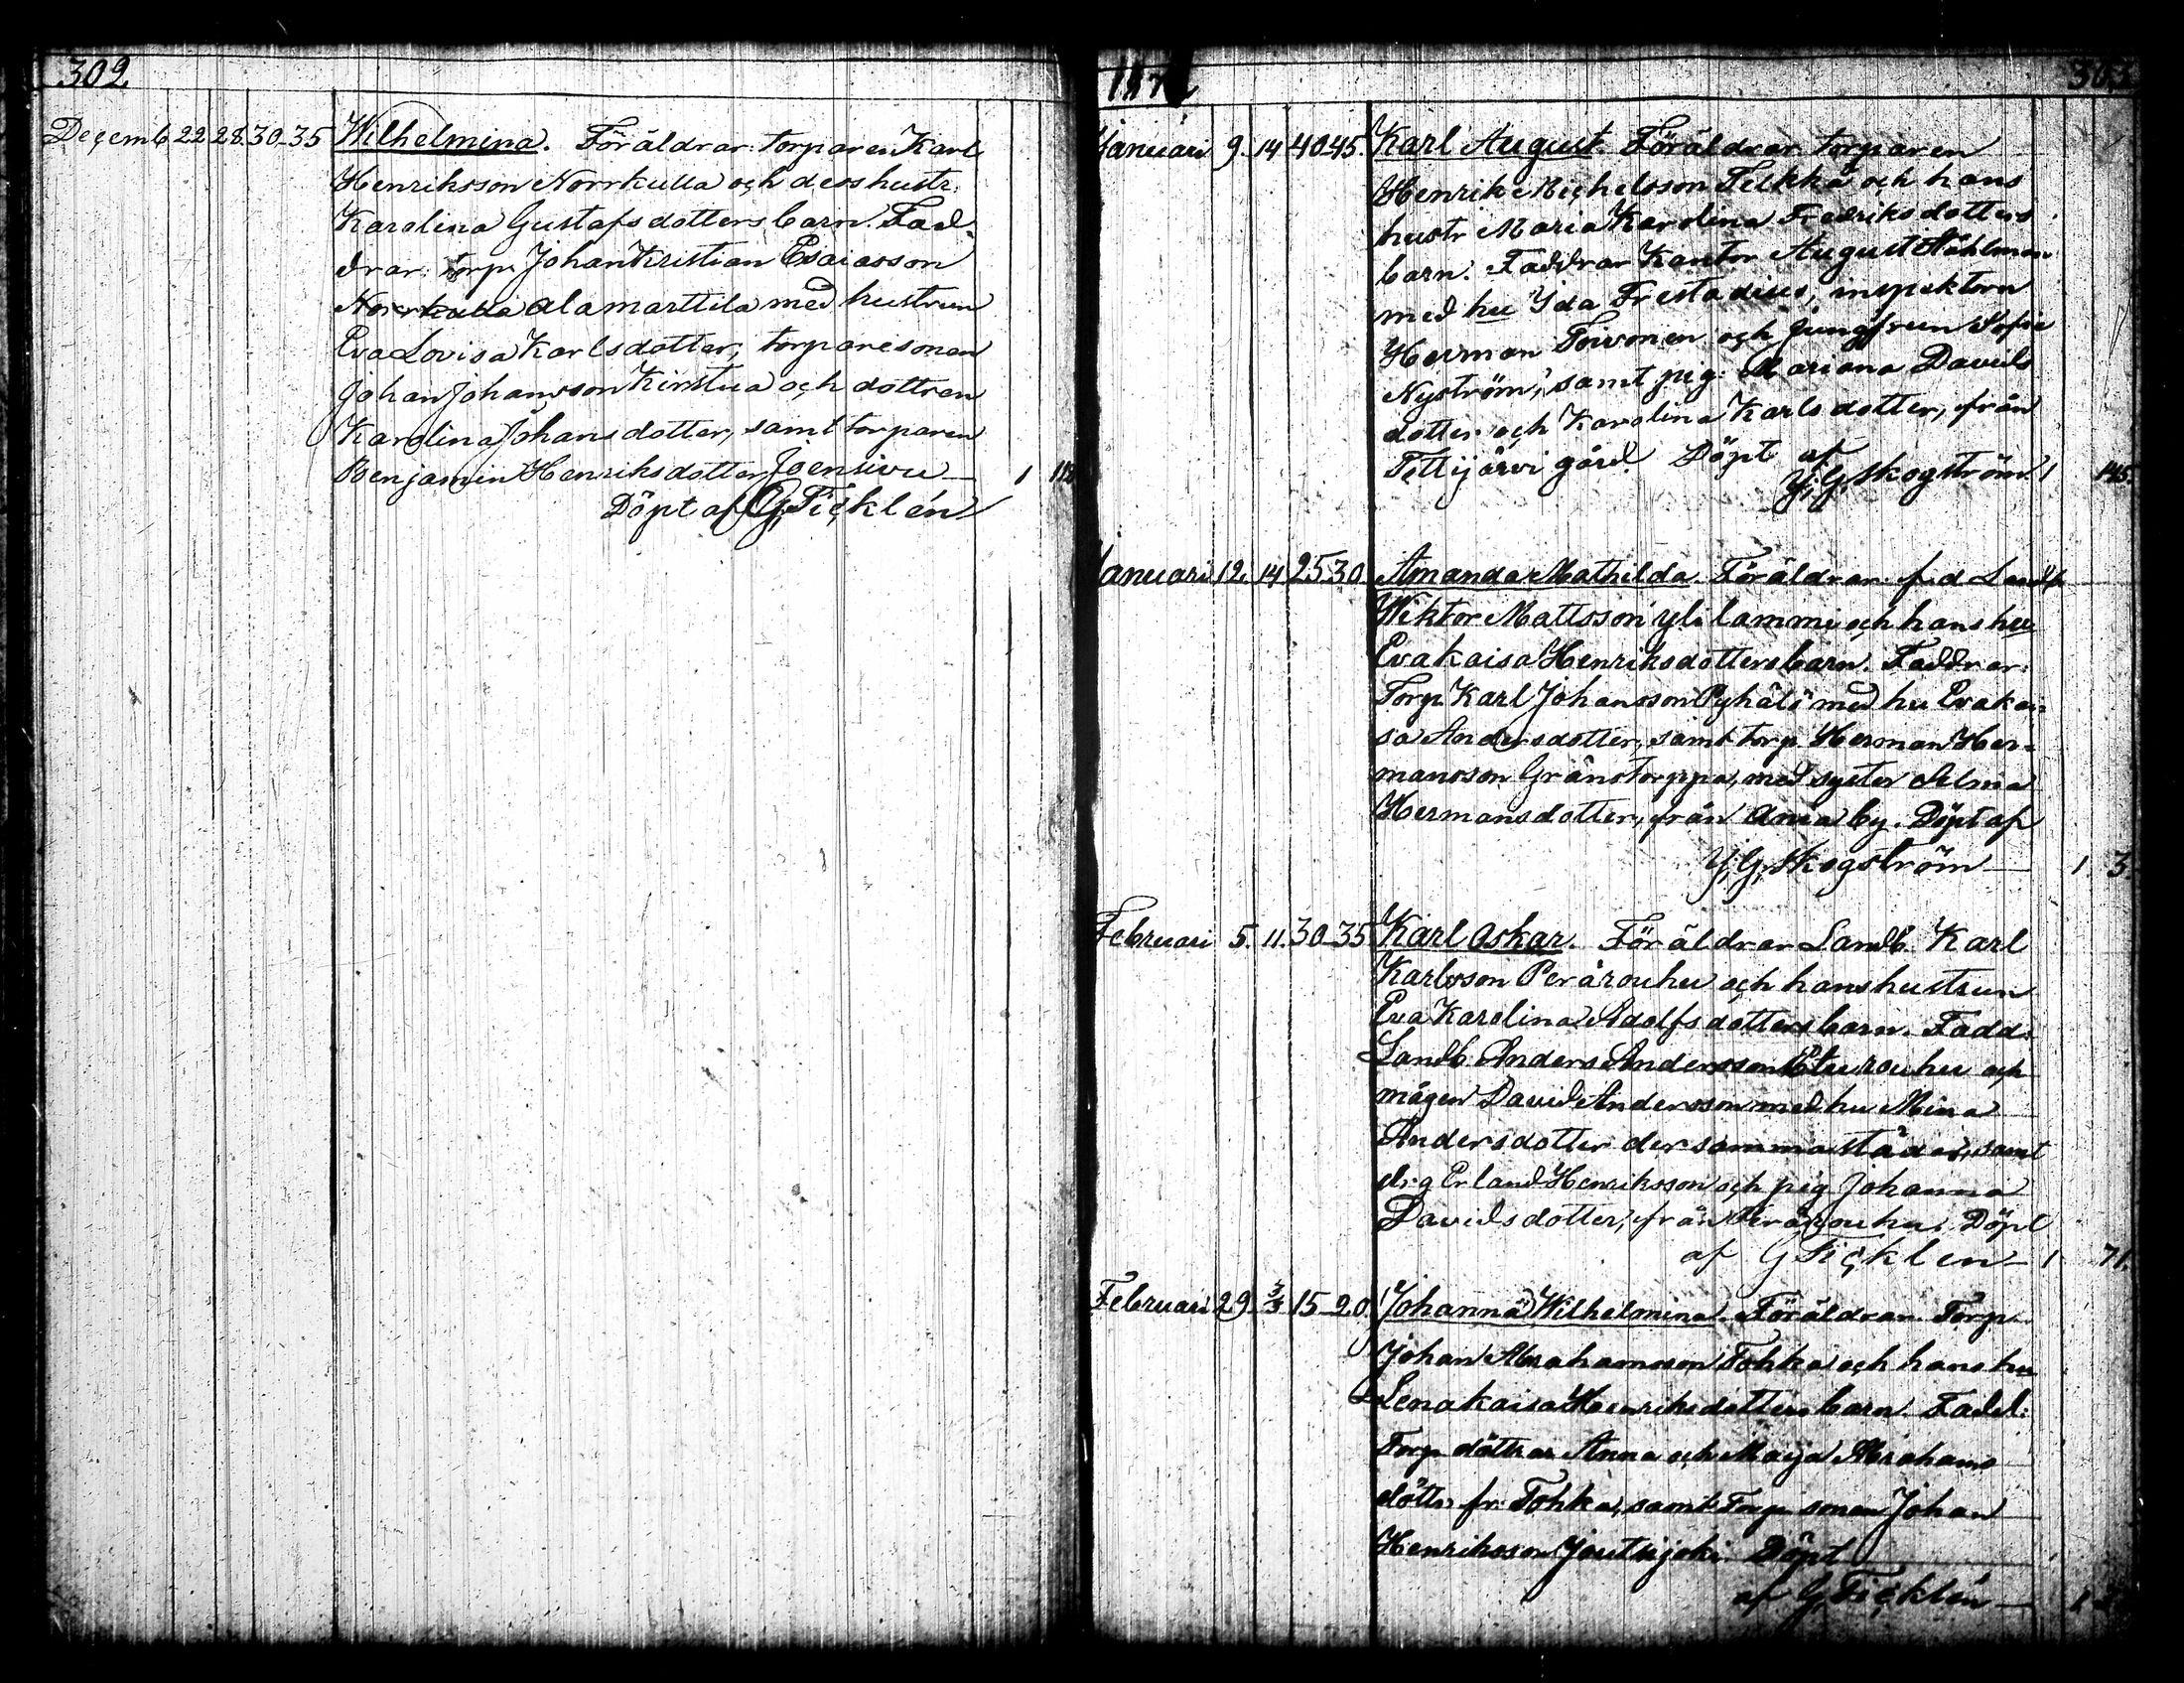 302
Decemb 22 28. 30-35 Wilhelmina. Föräldrar: torparen Karl
Henriksson Norrkulla och dess hustr.
Karolina Gustafsdotters barn. Fad-
drar: torp. Johan Kristian Esaiasson
Norrkulla Alamarttila med hustrun
Eva Lovisa Karlsdotter, torparesonen
Johan Johansson Kinstua och dottren
Karolina Johansdotter, samt torparen
Benjamin Henriksdotter Joensivu 1
Döpt af G, Ficklén
303
Januari 9. 14 40-45. Karl August. Föräldrar torparen
Henrik Michelsson Felkkä och hans
hustr Maria Karolina Fredriksdotters
barn. Faddrar Kantor August Ståhlman
med hu Ida Frestadius, inspektorn
Herman Toivonen och jungfrun Sofie
Nyström, samt pig: Mariana Davids
dotter och Karolina Karlsdotter, från
Tettijärvi gård. Döpt af
G, Skogström. 1 145.
Januari 12. 14 25-30. Amanda Mathilda. Föräldrar: f.d Landb
Wiktor Mattsson yli lammi och hans hu
Evakaisa Henriksdotters barn. Faddrar:
Torp. Karl Johansson Pyhältö med hu Evakai-
sa Andersdotter, samt torp Herman Her-
mansson Gränstorppa, med syster Selma
Hermansdotter, från Ania by. Döpt af
G, Skogström 1 3.
Februari 5. 11. 30-35 Karl Oskar. Föräldrar Landb. Karl
Karlsson Perärouhu och hans hustrun
Eva Karolina Adolfsdotters barn. Fadd:
Landb: Anders Andersson Eturouhu och
mågen David Andersson med hu Mina
Andersdotter dersammastädes, samt
dr:g Erland Henriksson och pig Johanna
Davidsdotter, från Perärouhu. Döpt
af G Ficklen 1 71.
Februari 29. 3/3 15-20. Johanna Wilhelmina. Föräldrar. Torp.
Johan Abrahamsson Tohka och hans hu
Lenakaisa Henriksdotters barn. Fadd:
Torp döttrar Anna och Maija Abrahams
dötter fr: Tohka, samt Torp sonen Johan
Henriksson Joutsijoki. Döpt
af G, Ficklén